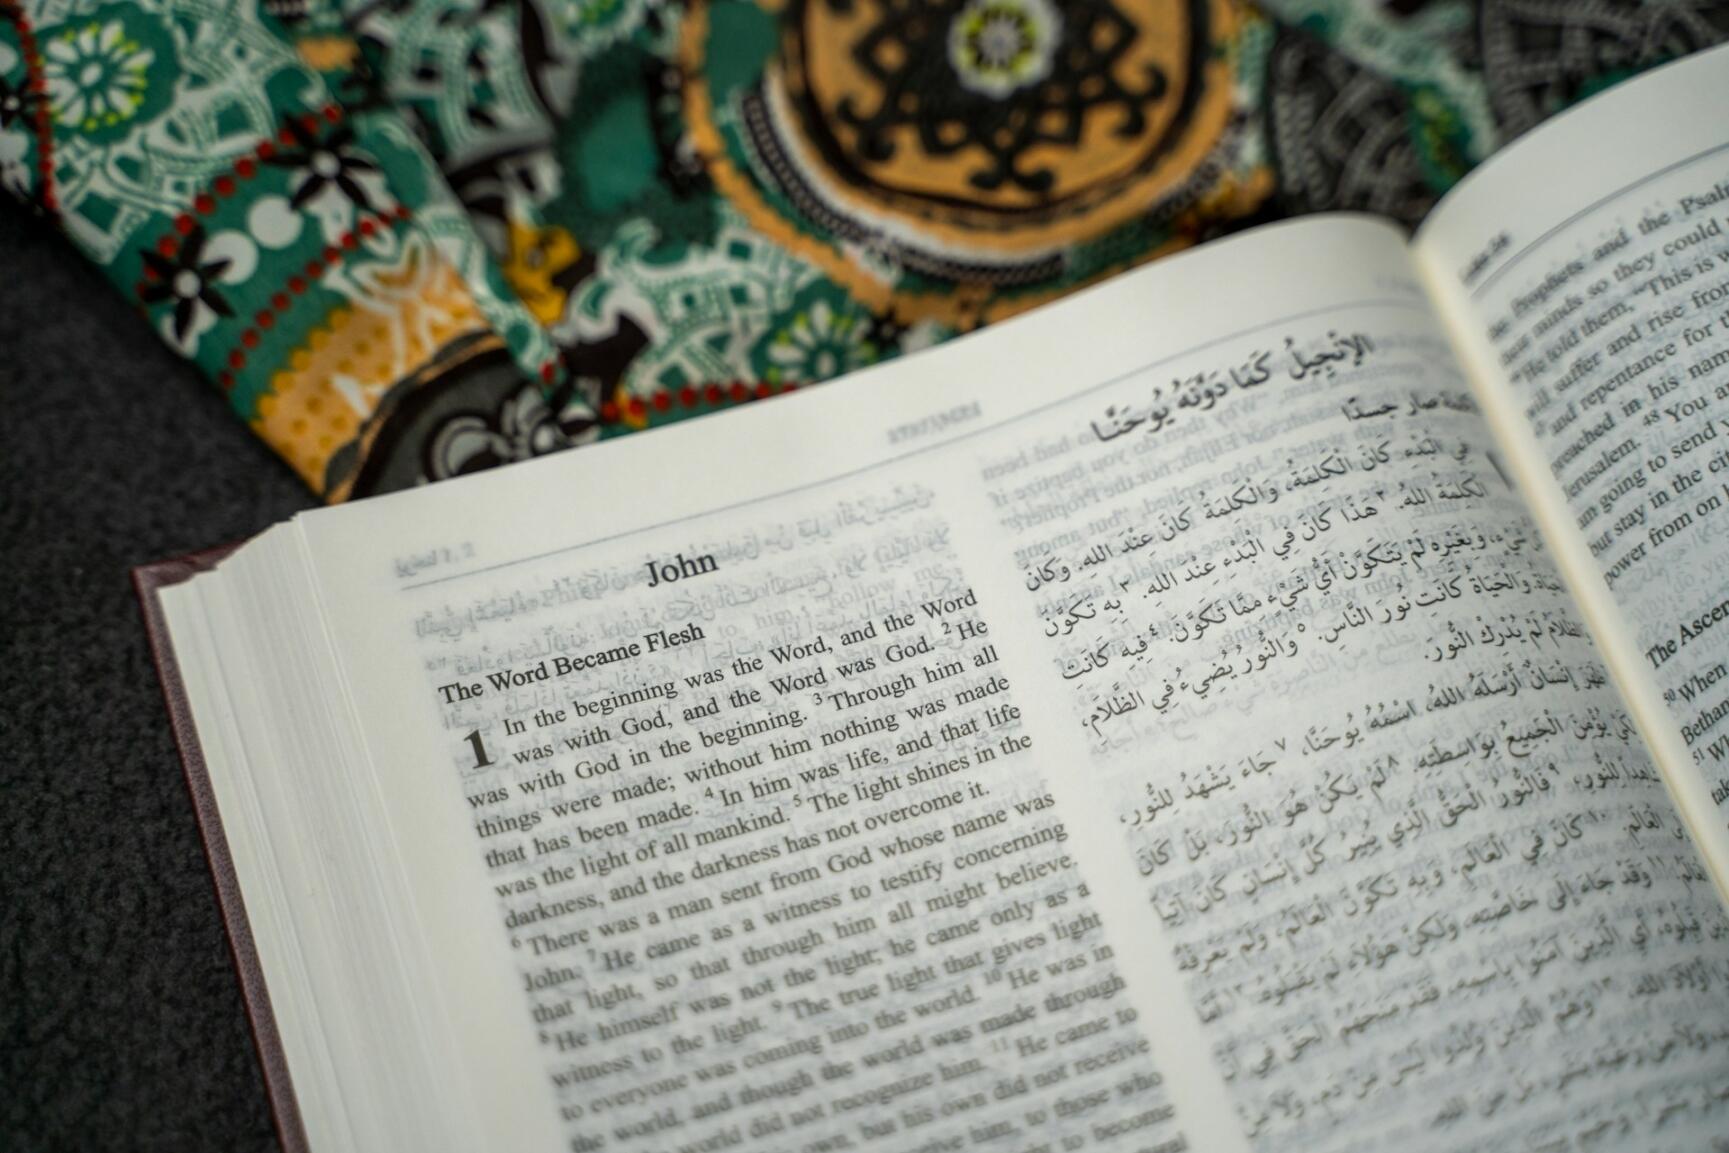 John
The Word Became Flesh
1 In the beginning was the Word, and the Word
was with God, and the Word was God. 2 He
was with God in the beginning. 3 Through him all
things were made; without him nothing was made
that has been made. 4 In him was life, and that life
was the light of all mankind. 5 The light shines in the
darkness, and the darkness has not overcome it.
6 There was a man sent from God whose name was
John. 7 He came as a witness to testify concerning
that light, so that through him all might believe.
8 He himself was not the light; he came only as a
witness to the light. 9 The true light that gives light
to everyone was coming into the world. 10 He was in
the world, and though the world was made through
world did not recognize him. 11 He came to
own, but his own did not receive
him, to those who
to become
الإِنْجِيلُ كَمَا دَوَّنَهُ يُوحَنَّا
صار جسدًا
فِي الْبَدْءِ كَانَ الْكَلِمَةُ، وَالْكَلِمَةُ كَانَ عِنْدَ اللهِ. وَكَانَ
الْكَلِمَةُ اللهَ. ٢ هَذَا كَانَ فِي الْبَدْءِ عِنْدَ اللهِ. ٣ بِهِ تَكَوَّنَ
شَيْءٍ، وَبِغَيْرِهِ لَمْ يَتَكَوَّنْ أَيُّ شَيْءٍ مِمَّا تَكَوَّنَ. ٤ فِيهِ كَانَتِ
وَالْحَيَاةُ كَانَتْ نُورَ النَّاسِ. ٥ وَالنُّورُ يُضِيءُ فِي الظَّلَامِ،
لَمْ يُدْرِكِ النُّورَ.
ظَهَرَ إِنْسَانٌ أَرْسَلَهُ اللهُ، اسْمُهُ يُوحَنَّا، ٧ جَاءَ يَشْهَدُ لِلنُّورِ،
يُؤْمِنَ الْجَمِيعُ بِوَاسِطَتِهِ. ٨ لَمْ يَكُنْ هُوَ النُّورَ، بَلْ كَانَ
لِلنُّورِ، ٩ فَالنُّورُ الْحَقُّ الَّذِي يُنِيرُ كُلَّ إِنْسَانٍ كَانَ آتِيًا
الْعَالَمِ. ١٠ كَانَ فِي الْعَالَمِ، وَبِهِ تَكَوَّنَ الْعَالَمُ، وَلَمْ يَعْرِفْهُ
١١ وَقَدْ جَاءَ إِلَى خَاصَّتِهِ، وَلَكِنَّ هَؤُلَاءِ لَمْ يَقْبَلُوهُ.
أَيِ الَّذِينَ آمَنُوا بِاسْمِهِ، فَقَدْ مَنَحَهُمُ الْحَقَّ فِي أَنْ
أَوْلَادَ اللهِ، ١٣ وَهُمُ الَّذِينَ وُلِدُوا لَيْسَ مِنْ دَمٍ، وَلا مِنْ
Prophets and the
minds so they could
He told them, "This is
will suffer and rise from
and repentance for
preached in his name
Jerusalem. 48 You
am going to send
but stay in the city
power from on
The
50 When
51